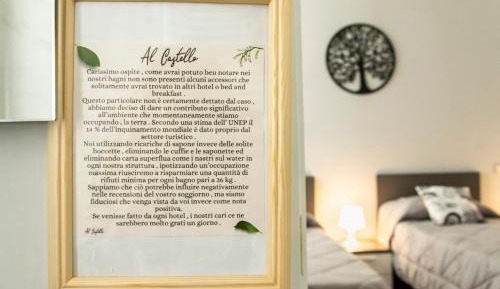 Al Castello
Carissimo ospite , come avrai potuto ben notare nei
nostri bagni non sono presenti alcuni accessori che
solitamente avrai trovato in altri hotel o bed and
breakfast .
Questo particolare non è certamente dettato dal caso ,
abbiamo deciso di dare un contributo significativo
all'ambiente che momentaneamente stiamo
occupando , la terra . Secondo una stima dell' UNEP il
14 % dell'inquinamento mondiale è dato proprio dal
settore turistico .
Noi utilizzando ricariche di sapone invece delle solite
boccette , eliminando le cuffie e le saponette ed
eliminando carta superflua come i nostri sul water in
ogni nostra struttura , ipotizzando un'occupazione
massima riusciremo a risparmiare una quantità di
rifiuti minima per ogni bagno pari a 36 kg .
Sappiamo che ciò potrebbe influire negativamente
nelle recensioni del vostro soggiorno , ma siamo
fiduciosi che venga vista da voi invece come nota
positiva.
Se venisse fatto da ogni hotel , i nostri cari ce ne
sarebbero molto grati un giorno .
Al Castello